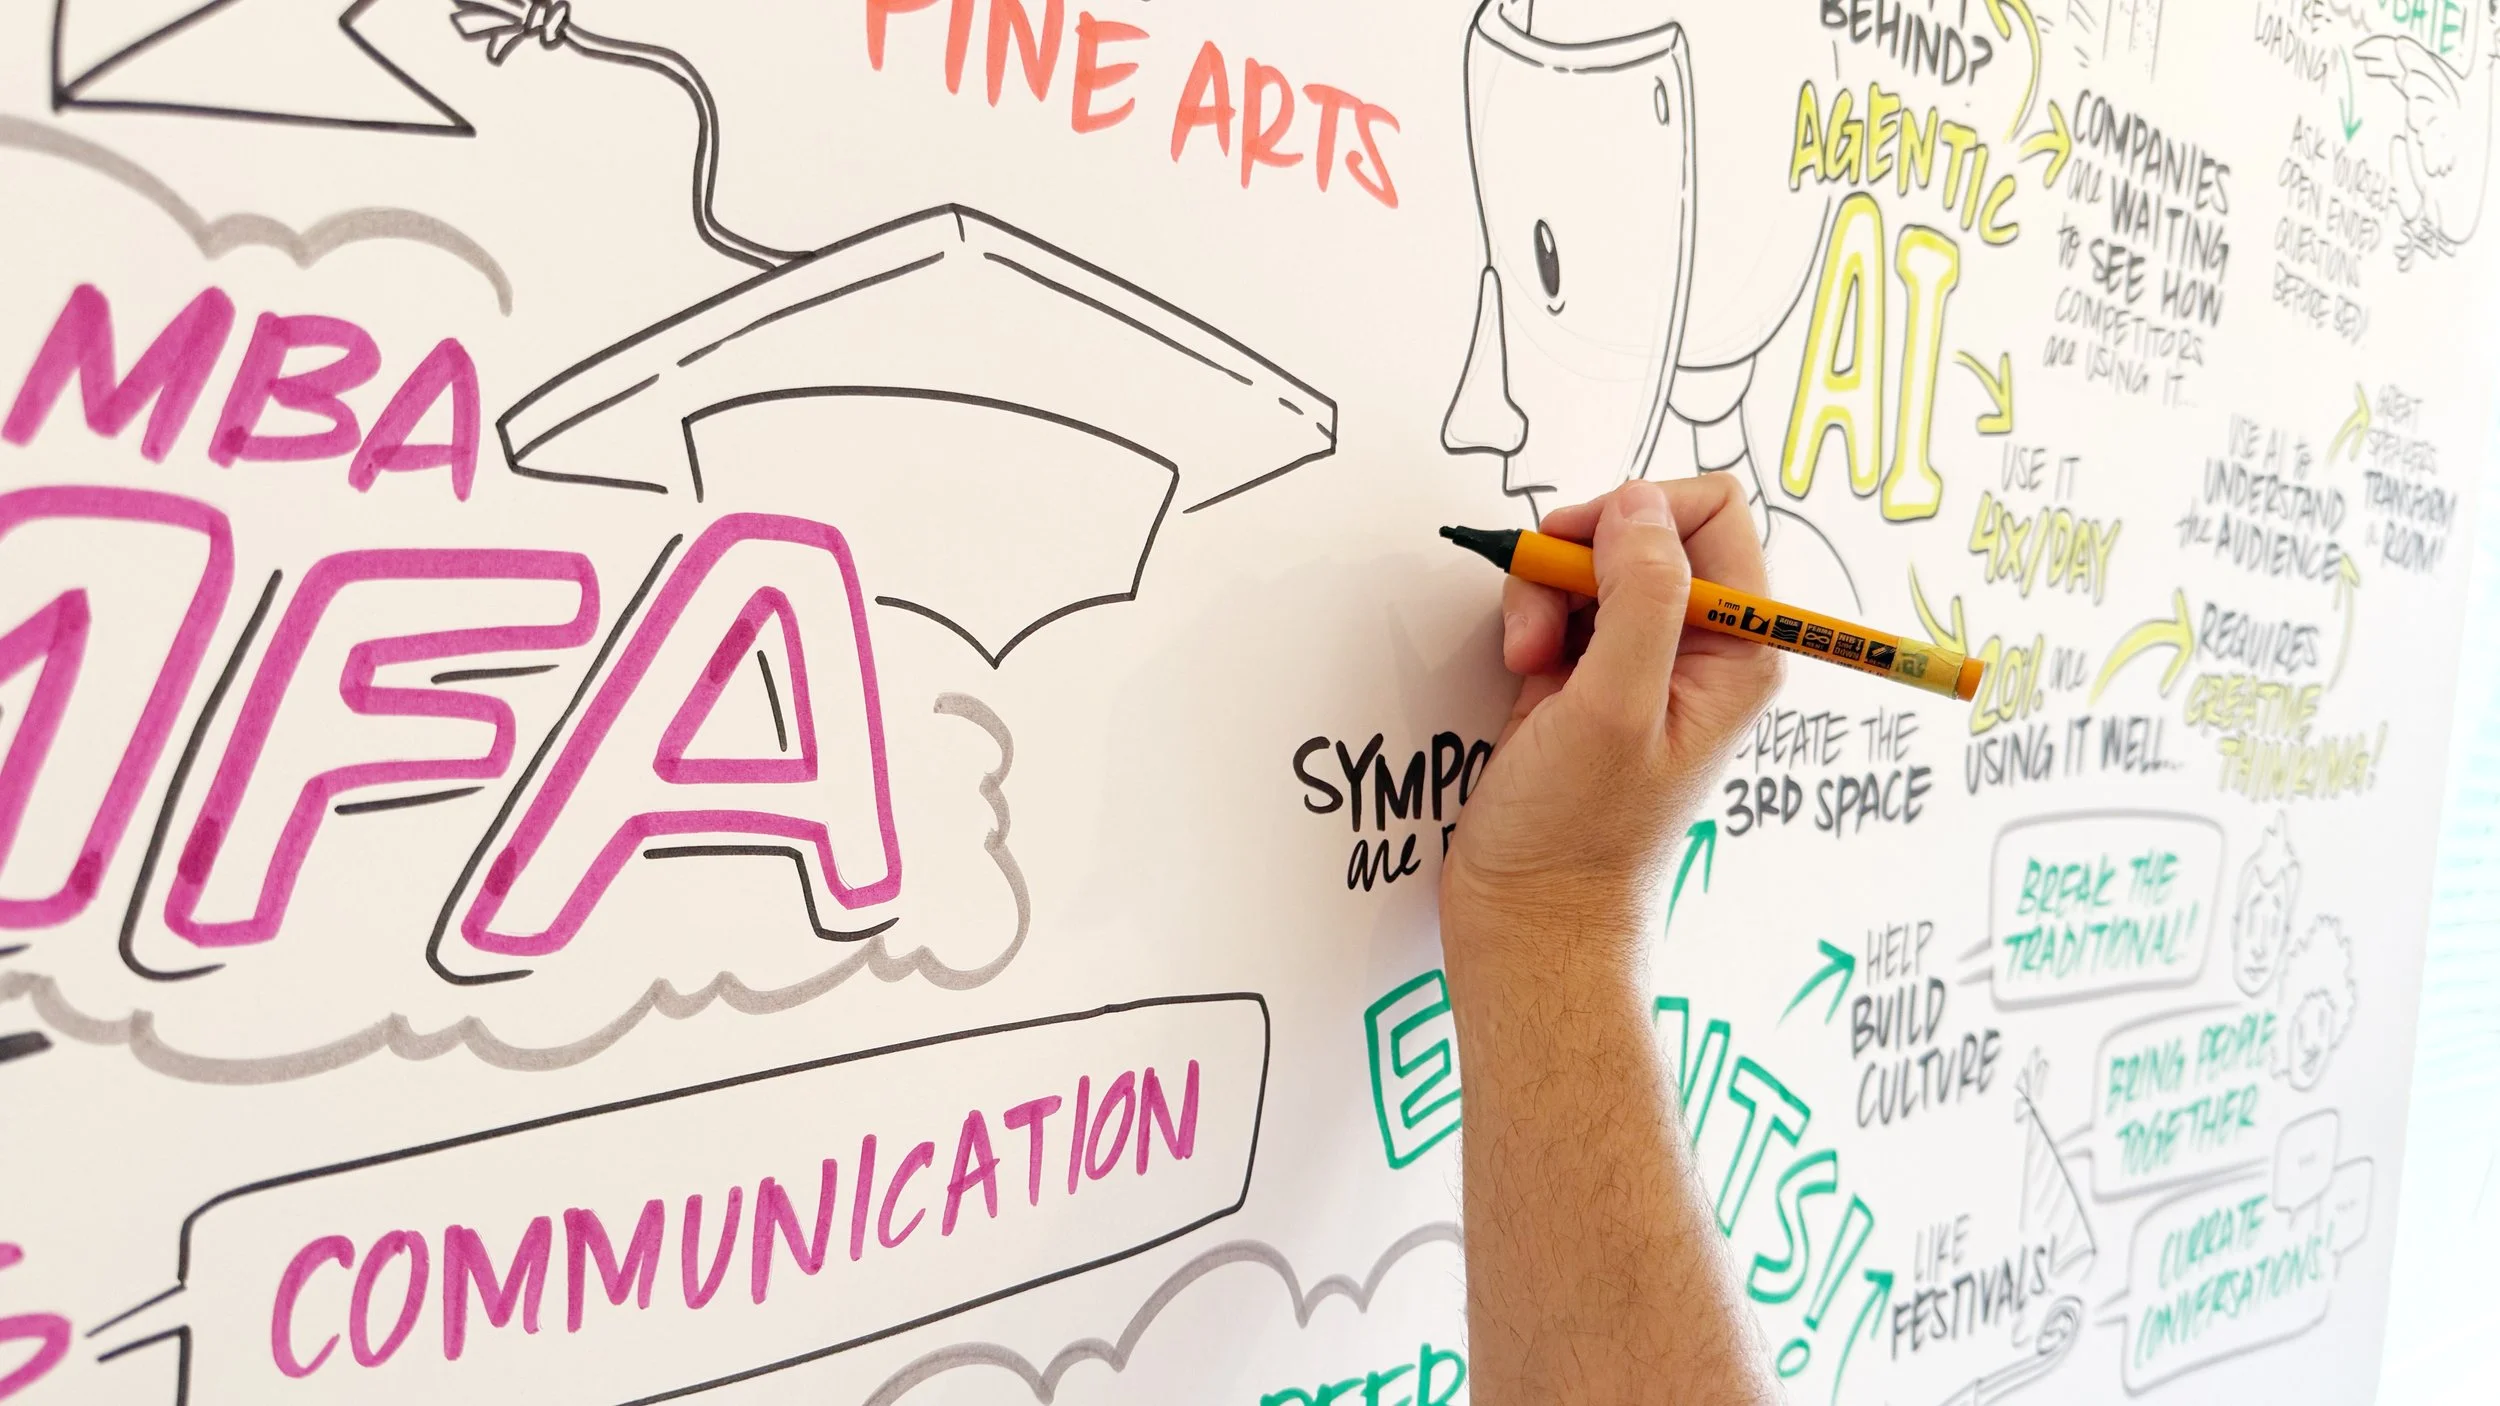 FINE ARTS
MBA
MFA
COMMUNICATION
BEHIND?
AGENTIC
AI
COMPANIES
are WAITING
to SEE HOW
COMPETITORS
are USING IT...
USE IT
4X/DAY
20% are
USING IT WELL...
REQUIRES
CREATIVE
THINKING!
USE AI to
UNDERSTAND
the AUDIENCE
GREAT
SPEAKERS
TRANSFORM
a ROOM!
LOADING
ASK YOURSELF
OPEN ENDED
QUESTIONS
BEFORE BED!
1 mm
010
SYMPO
are
CREATE THE
3RD SPACE
HELP
BUILD
CULTURE
BREAK THE
TRADITIONAL!
BRING PEOPLE
TOGETHER
CURRATE
CONVERSATIONS!
LIKE
FESTIVALS!